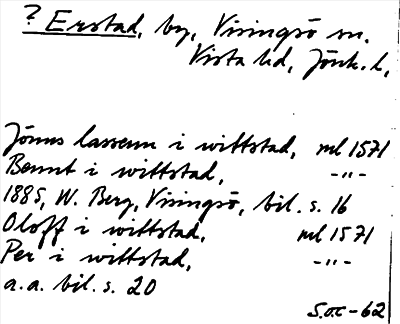 ? Erstad, by, Visingsö sn.
Vista hd, Jönk. l,
Jönns lassenn i wittstad, ml 1571
Bennt i wittstad, -"-
1885, W. Berg, Visingsö, bil. s. 16
Oloff i wittstad, ml 1571
Per i wittstad, -"-
a.a. bil. s. 20
S.o.c -62